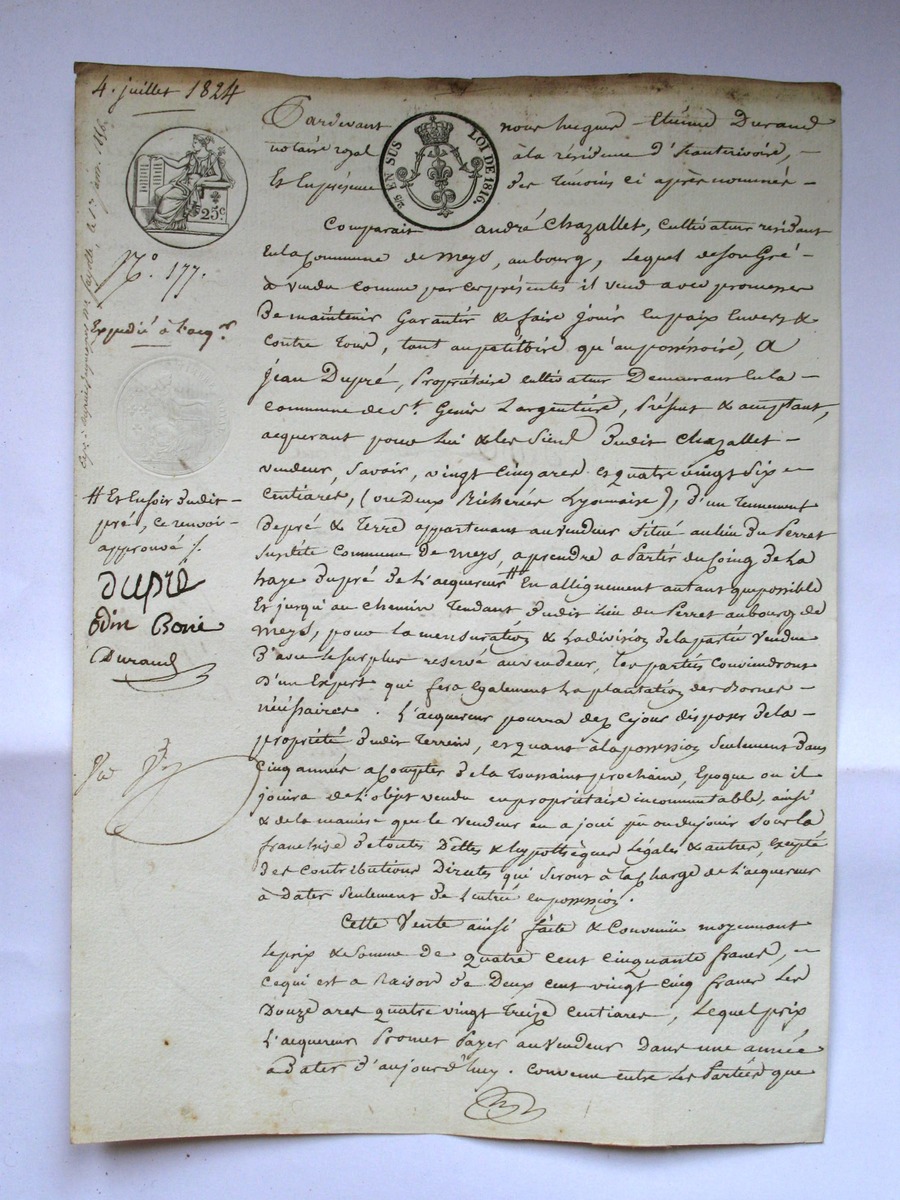 4. juillet 1824
25c.
N.o 177.
Expédié à l'acq.r
# Et en soir dudit
pré, ce renvoi
approuvé /.
dupré
odin Boné
Durand
25 EN SUS LOI DE 1816.
Pardevant nous Etiénne Durand
notaire royal à la résidence d'
Et en présence des témoins ci après nommés
Comparait andré Chazallet, cultivateur résidant
en la Commune de Meys, au bourg, Lequel de son Gré
a vendu comme par ces présentes il vend avec promesse
De maintenir Garantir & faire jouir en paix Envers &
contre tous, tant au petitoire qu'au possessoire, A
jean Dupré, Propriétaire cultivateur Demeurant en la
commune de St. Genis Largentiére, Présent & acceptant,
acquerant pour lui & les siens dudit Chazallet
vendeur, savoir, vingt cinq ares et quatre vingt six
centiares, (ou Deux Bicherées Lyonnaise), d'un tenement
de pré & Terre appartenant au vendeur situé au lieu du Perret
susdite Commune de Meys, a prendre a Partir du Coing de la
haye du pré de l'acquereur # En allignement autant que possible
Et jusqu'au chemin tendant dudit lieu du Perret au bourg de
Meys, pour la mensuration & la division de la partie vendue
d'avec le surplus reservé au vendeur, les parties conviendront
d'un Expert qui fera Egalement la plantation des Bornes
nécéssaires. L'acquereur pourra dez ce jour disposer de la
propriété dudit terrein, et quant à la possession seulement dans
cinq années a compter de la Toussaint prochaine, Epoque ou il
jouira de l'objet vendu en propriétaire incommutable, ainsi
& de la maniere que le vendeur en a joui pu ou du jouir sous la
franchise de toutes Dettes & hypothéques Légales & autres, excepté
des Contributions Directes qui seront à la charge de l'acquereur
à dater seulement de l'entrée en possession.
Cette Vente ainsi faite & Convenüe moyennant
le prix & somme de quatre cent cinquante francs,
ce qui est a raison de Deux cent vingt cinq francs les
Douze ares quatre vingt treize centiares, lequel prix
l'acquereur Promet Payer au vendeur Dans une année
a dater d'aujourd'huy. Convenu entre les Parties que